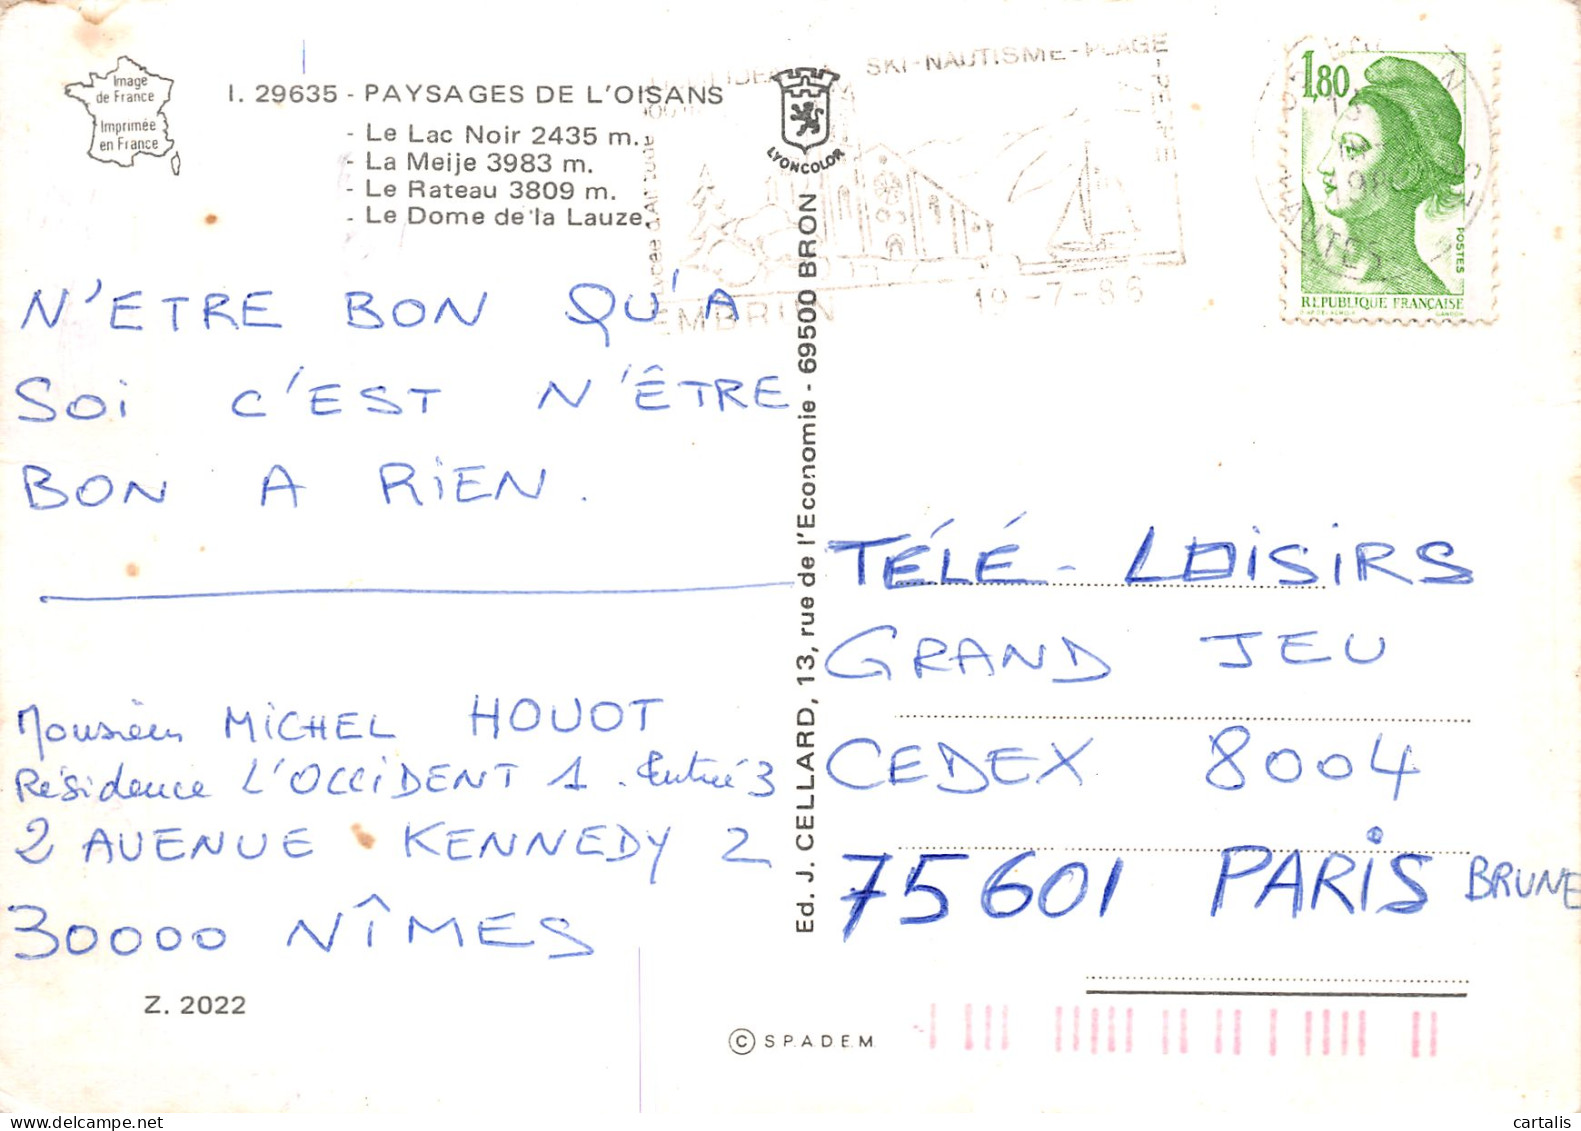 Image
de France
Imprimée
en France
I. 29635 - PAYSAGES DE L'OISANS
- Le Lac Noir 2435 m.
- La Meije 3983 m.
- Le Rateau 3809 m.
- Le Dome de la Lauze
LYONCOLOR
SKI-NAUTISME-PLAGE
EMBRUN
19-7-86
1,80
POSTES
RÉPUBLIQUE FRANÇAISE
GANDON
N'ETRE BON QU'A
SOI C'EST N'ÊTRE
BON A RIEN.
Monsieur MICHEL HOUOT
Résidence L'OCCIDENT 1. Entrée 3
2 AVENUE KENNEDY 2
30000 NÎMES
Z. 2022
Ed. J. CELLARD, 13, rue de l'Economie - 69500 BRON
TÉLÉ-LOISIRS
GRAND JEU
CEDEX 8004
75601 PARIS BRUNE
© SPADEM
cartalis